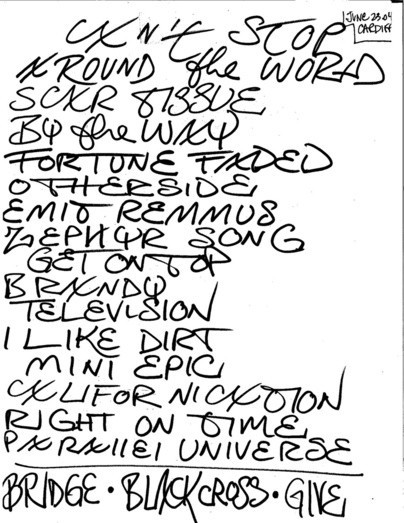 JUNE 23 04
CARDIFF
CAN't STOP
AROUND the WORLD
SCAR TISSUE
BY the WAY
FORTUNE FADED
OTHERSIDE
EMIT REMMUS
ZEPHYR SONG
GET ON TOP
BRANDY
TELEVISION
I LIKE DIRT
MINI EPIC
CALIFORNICATION
RIGHT ON TIME
PARAllEl UNIVERSE
BRIDGE • BLACK CROSS • GIVE